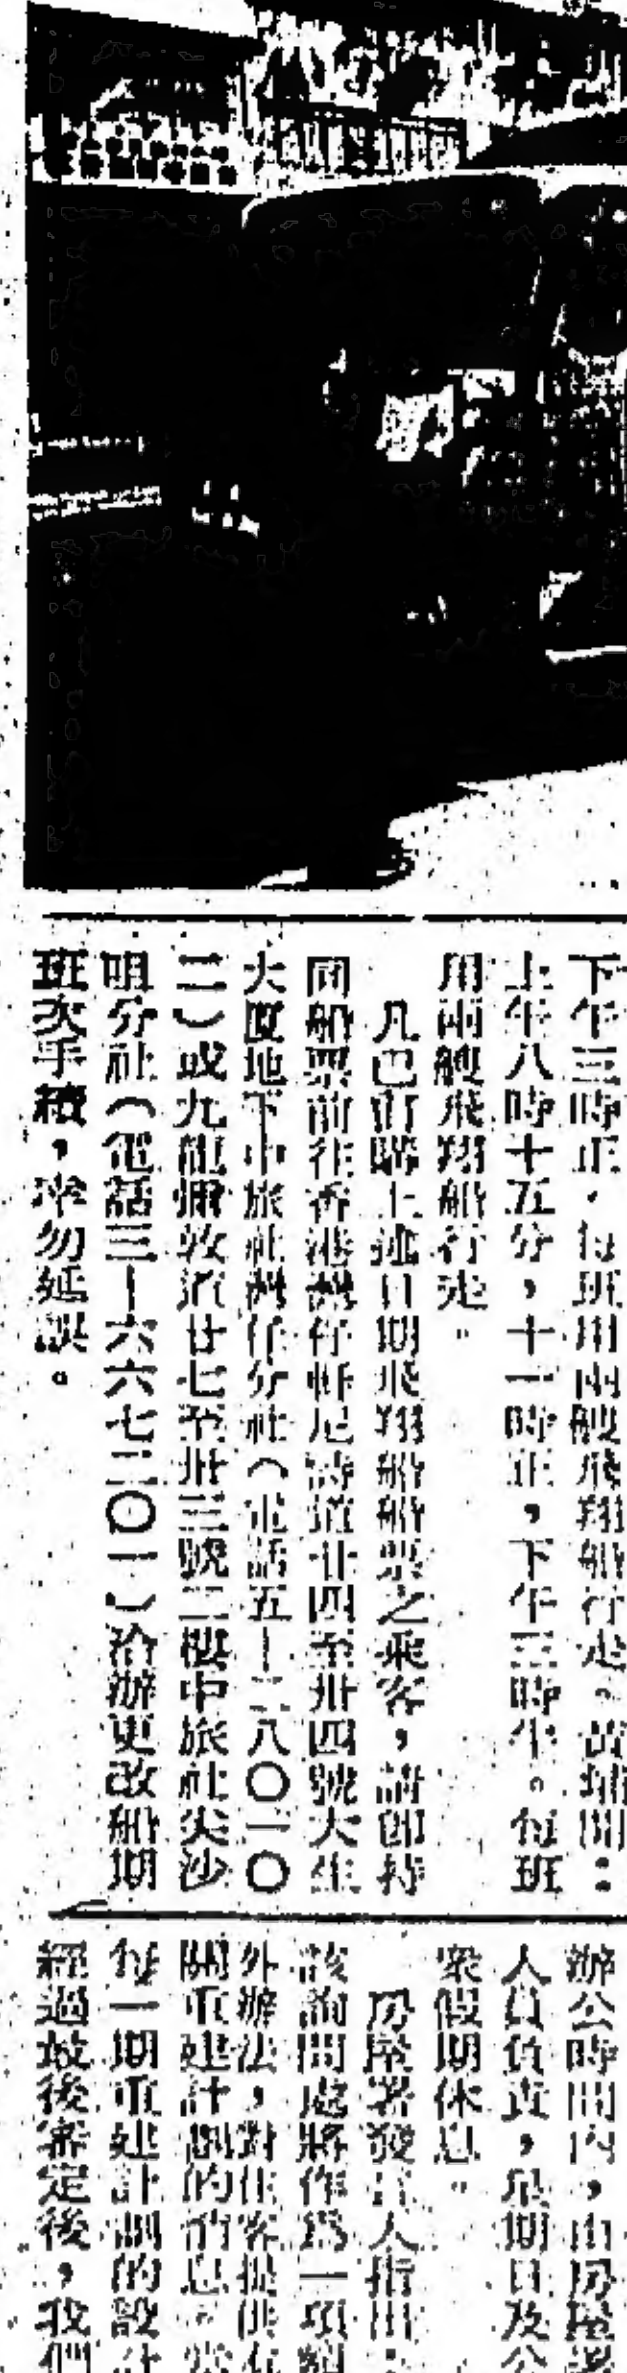 下午三時正,每班用兩艘飛翔船行走。黃埔開:
上午八時十五分,十一時正,下午三時半。每班
用兩艘飛翔船行走。
凡已訂購上述日期飛翔船船票之乘客,請即持
同船票前往香港灣仔軒尼詩道廿四至卅四號大生
大廈地下中旅社灣仔分社(電話五—二八〇一〇
二)或九龍彌敦道廿七至卅三號二樓中旅社尖沙
咀分社(電話三—六六七二〇一)洽辦更改船期
班次手續,幸勿延誤。
辦公時間內,由房屋署
人員負責,星期日及公
衆假期休息。
房屋署發言人指出:
該詢問處將作爲一項額
外辦法,對住客提供有
關重建計劃的消息。當
每一期重建計劃的設計
經過最後審定後,我們